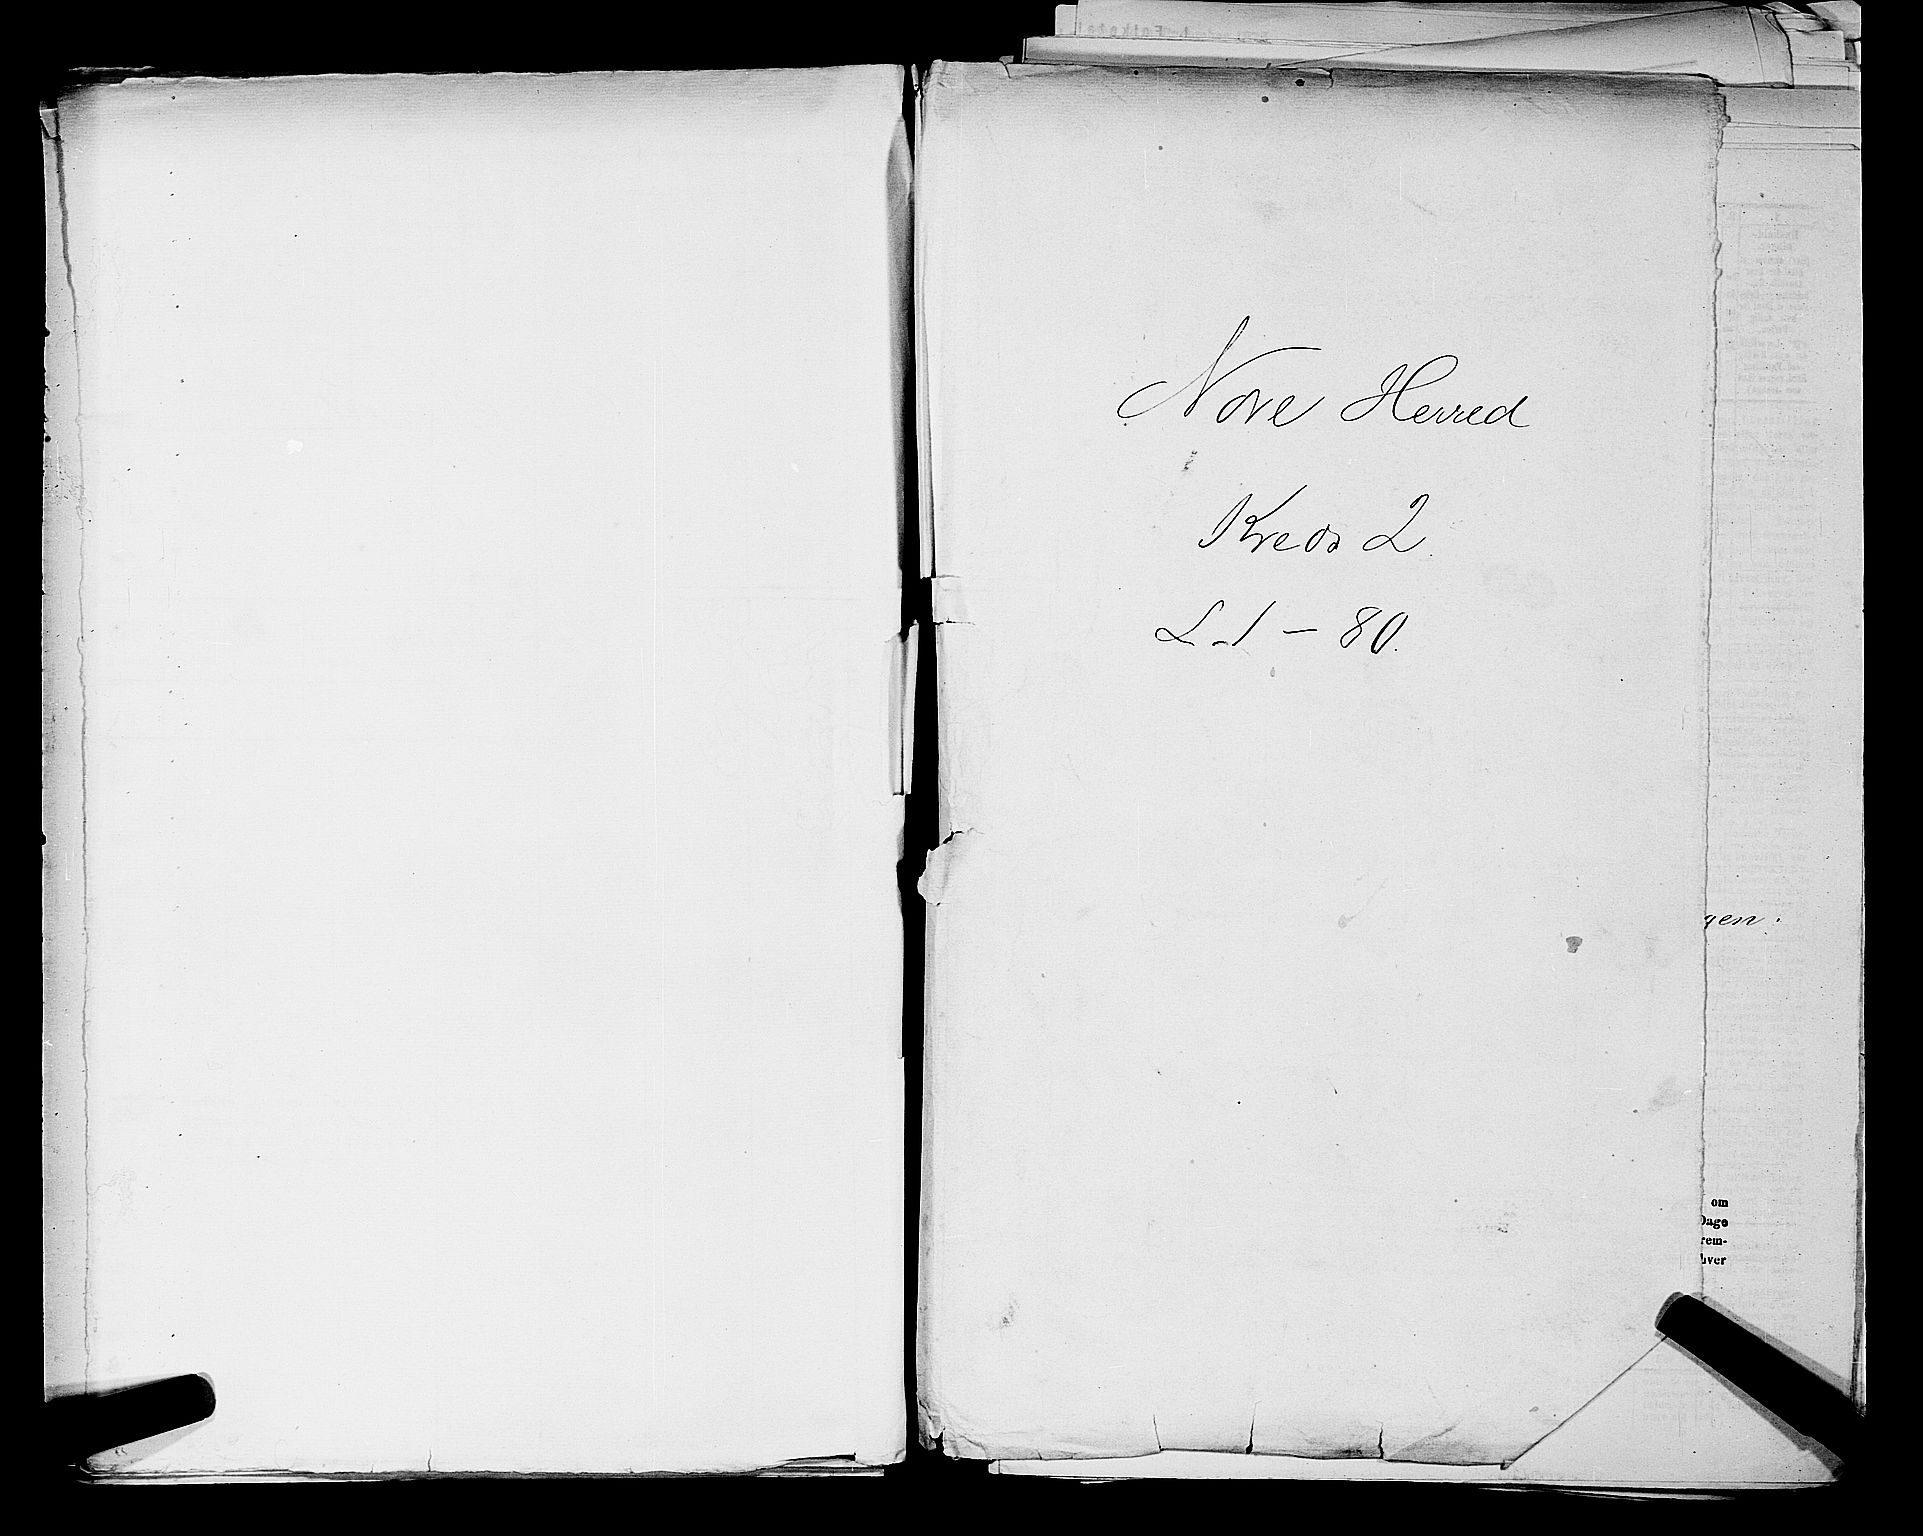 Nore Herred
Kreds 2.
L. 1 – 80.
gen.
om
Dage
rem-
hver